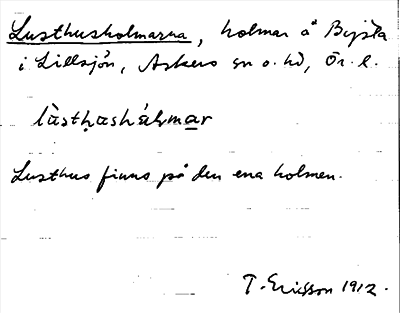 Lusthusholmarna, holmar å Bysta
i Lillsjön, Askers sn o. hd, Ör. l.
lùsthasháḷmar
Lusthus finns på den ena holmen.
T. Ericsson 1912.